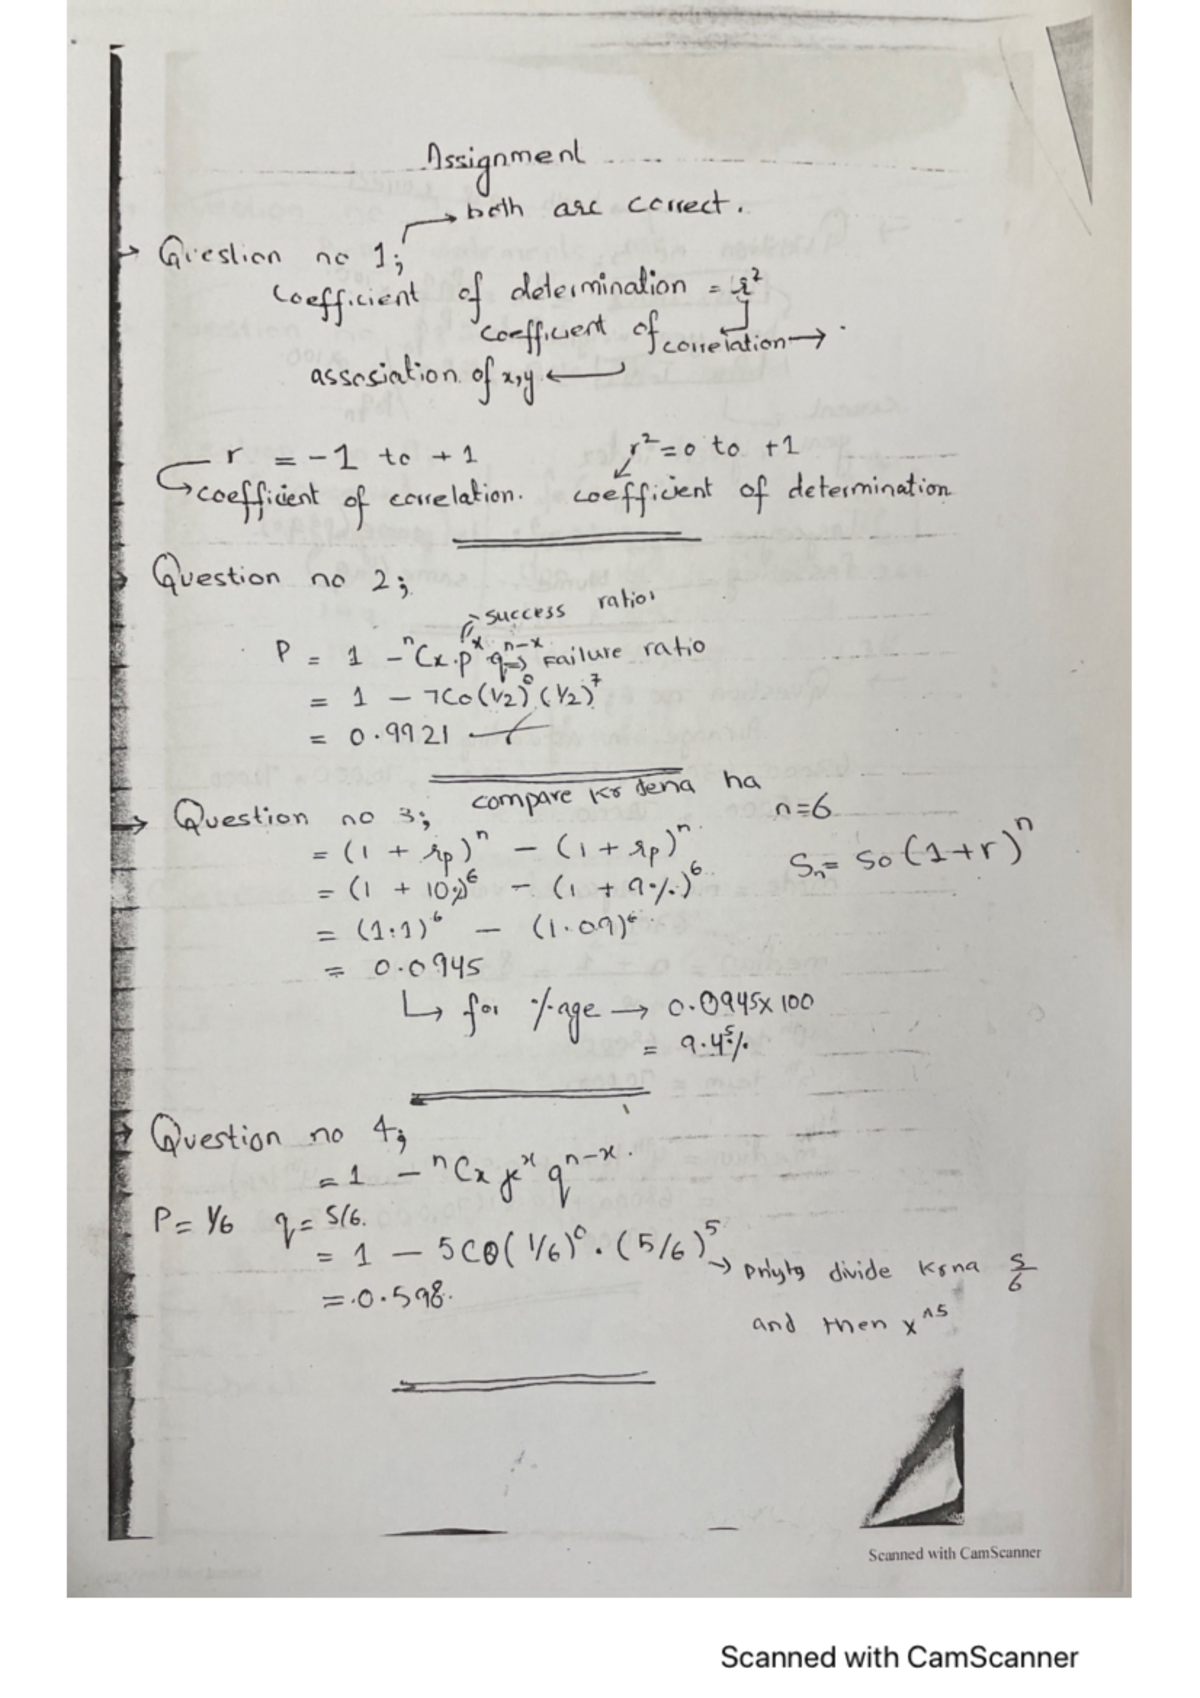 Assignment
→ both are correct.
→ Question no 1;
Coefficient of determination = r²
coefficient of correlation →
assosiation of x,y ←
r = -1 to +1    r² = 0 to +1
→ coefficient of correlation.    coefficient of determination
→ Question no 2;
success ratio
P = 1 - ⁿCx.pˣ qⁿ⁻ˣ → Failure ratio
= 1 - 7C0 (1/2)⁰ (1/2)⁷
= 0.9921
→ Question no 3; compare kr dena ha
n=6
= (1 + rp)ⁿ - (1 + rp)ⁿ    Sn = So (1+r)ⁿ
= (1 + 10%)⁶ - (1 + 9%)⁶
= (1.1)⁶ - (1.09)⁶
= 0.0945
↳ for %age → 0.0945 x 100
= 9.45%
→ Question no 4;
= 1 - ⁿCx pˣ qⁿ⁻ˣ
P = 1/6  q = 5/6.
= 1 - 5C0 (1/6)⁰ . (5/6)⁵
→ divide krna 5/6
= 0.598.
and then x^5
Scanned with CamScanner
Scanned with CamScanner